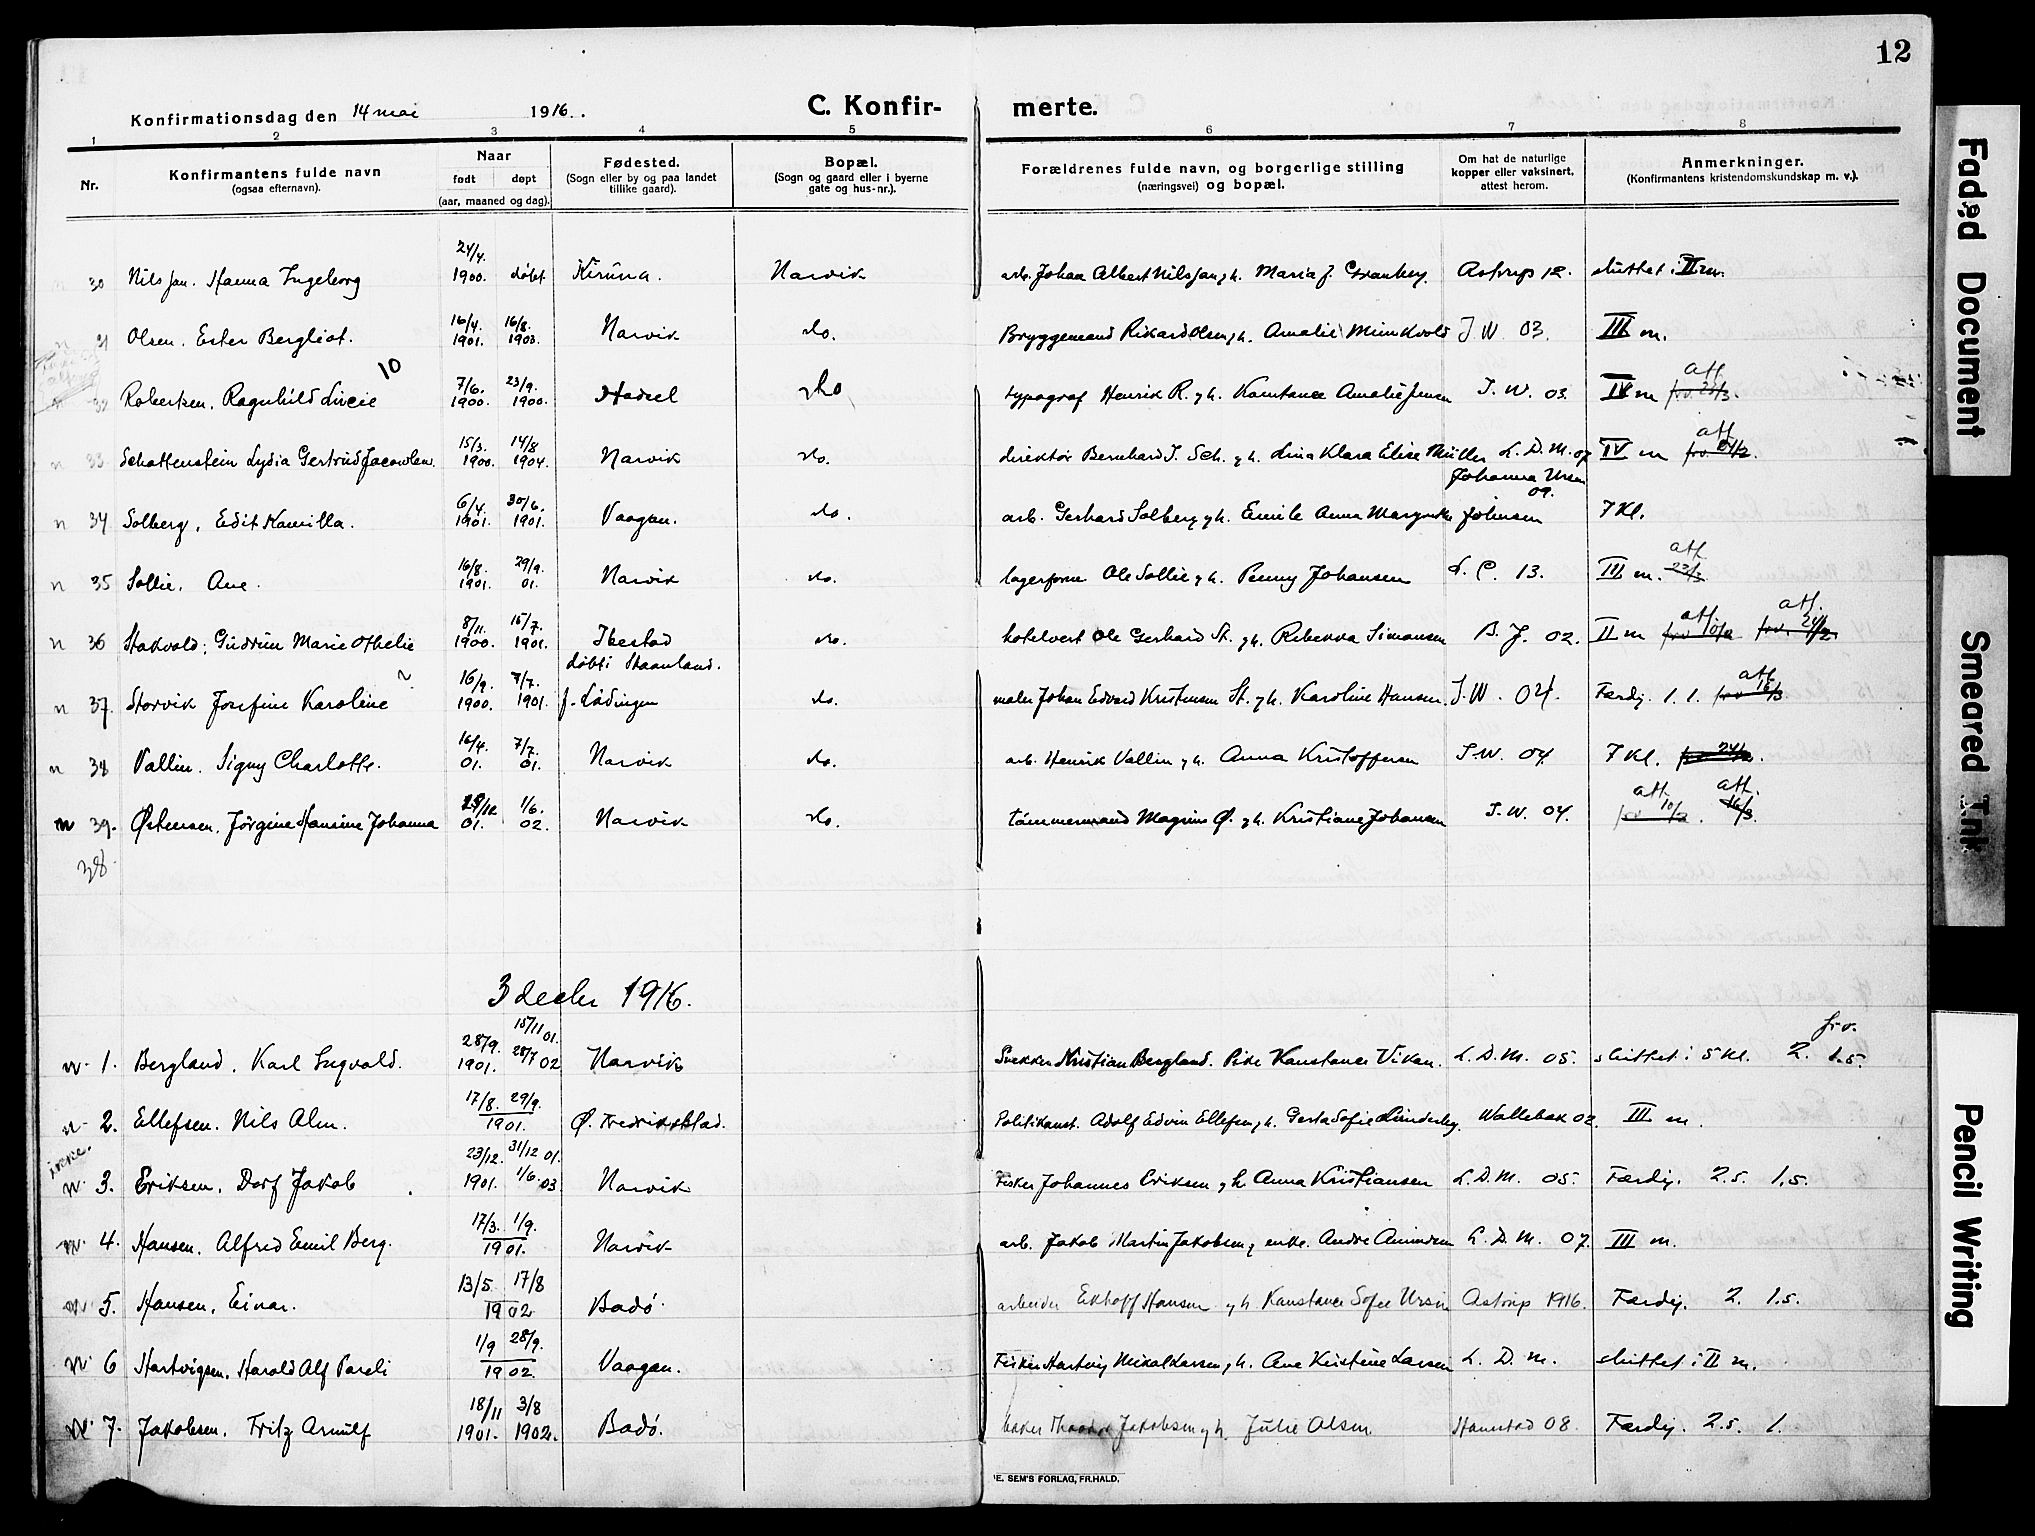 12
Konfirmationsdag den 14 mai 1916.
C. Konfir- merte.
1 2 3 4 5 6 7 8
Nr.
Konfirmantens fulde navn
(ogsaa efternavn).
Naar
født døpt
(aar, maaned og dag).
Fødested.
(Sogn eller by og paa landet
tillike gaard).
Bopæl.
(Sogn og gaard eller i byerne
gate og hus-nr.).
Forældrenes fulde navn, og borgerlige stilling
(næringsvei) og bopæl.
Om hat de naturlige
kopper eller vaksinert,
attest herom.
Anmerkninger.
(Konfirmantens kristendomskundskap m. v.).
n 30 Nilsjan. Hanna Ingeborg 24/4. 1900. døbt Kiruna. Narvik arb. Johan Albert Nilsjan g h. Maria J. Granberg. Astrup 12. sluttet i II m.
n 31 Olsen. Ester Bergliot. 16/4. 1901. 16/8. 1903. Narvik do. Bryggemand Rikard Olsen g h. Amalie Munkvold J W 03. III m.
10
n 32 Robertsen. Ragnhild Livie 7/6. 1900. 23/9. 1900. Hadsel do typograf Henrik R. g h. Konstance Amalie Jensen J. W. 03. IV m frv. 23/3. att
n 33 Schattenstein Lydia Gertrud Jacowlew. 15/3. 1900. 14/8 1904. Narvik do. direktør Bernhard J. Sch. g h. Lina Klara Elise Müller L. D. M. 07 IV m frv 24/2. att
n 34 Solberg. Edit Kamilla. 6/4. 1901. 30/6. 1901. Vaagan. do. arb. Gerhard Solberg g h. Emile Anna Margrethe Johnsen Johanna Ursin 09. 7 Kl.
n 35 Sollie. Ane. 16/8. 1901. 29/9. 01. Narvik do. lagerform Ole Sollie g h. Penny Johansen L. C. 13. III m. 23/3 att
n 36 Stokvold. Gudrun Marie Othelie 8/11. 1900. 15/7. 1901. Ibestad do. hotelvert Ole Gerhard St. g h. Rebekka Simonsen B. J. 02. II m frv 10/2 att frv. 24/2 att.
døbt i Skaanland.
n 37. Storvik Josefine Karoline 16/9. 1900. 7/7. 1901. f. Lødingen do. maler Johan Edvard Kristensen St. g h. Karoline Hansen. J. W. 04. Færdig. 1. 1. frv 16/3 att
n 38 Vallin. Signy Charlotte. 16/4. 01. 7/7. 01. Narvik do. arb. Henrik Vallin g h. Anna Kristoffersen J. W. 04. 7 Kl. frv 24/2.
n 39. Østensen. Jørgine Hansine Johanna 25/12 01. 1/6. 02. Narvik do. tømmermand Magnus Ø. g h. Kristiane Johansen J. W. 04. frv 10/2. att 16/3. att.
38
3 decbr 1916.
n. 1. Bergland. Karl Ingvald. 28/9. 1901. 15/11 01. 28/7 02 Narvik Snekker Kristian Bergland. Pike Konstance Vikan. L. D. M. 05. sluttet i 5 kl. 2. 1.5. frv.
n 2. Ellefsen. Nils Alm. 17/8. 29/9. 1901. Ø. Fredrikstad. Politikonst. Adolf Edvin Ellefsen g h. Gerda Sofie Lunderby. Wallebæk 02. III m.
ikke.
n. 3. Eriksen. Dorf Jakob 23/12. 1901. 31/12 01. 1/6. 03 Narvik Fisker Johannes Eriksen g h Anna Kristiansen L. D. M. 05. Færdig. 2.5. 1.5.
n. 4. Hansen. Alfred Emil Berg. 17/3. 1/9. 1901. Narvik arb. Jakob Martin Jakobsen g enke. Andre Amundsen L. D. M. 07. III m.
n. 5. Hansen. Einar. 13/5. 17/8 1902 Bodø. arbeider Ekhoff Hansen g h. Konstance Sofie Ursin Astrup 1916. Færdig. 2. 1.5.
n. 6 Hartvigsen. Harald Alf Pareli 1/9 28/9. 1902. Vaagan. Fisker Hartvig Nikal Larsen g h. Ane Kristine Larsen L. D. M. sluttet i II m.
n. 7. Jakobsen. Fritz Arnulf 18/11 1901. 3/8 1902. Bodø. baker Jakobsen g h. Julie Olsen. Hanstad 08. Færdig. 2.5. 1.
E. SEM'S FORLAG, FR.HALD.
Faded Document
Smeared Ink
Pencil Writing